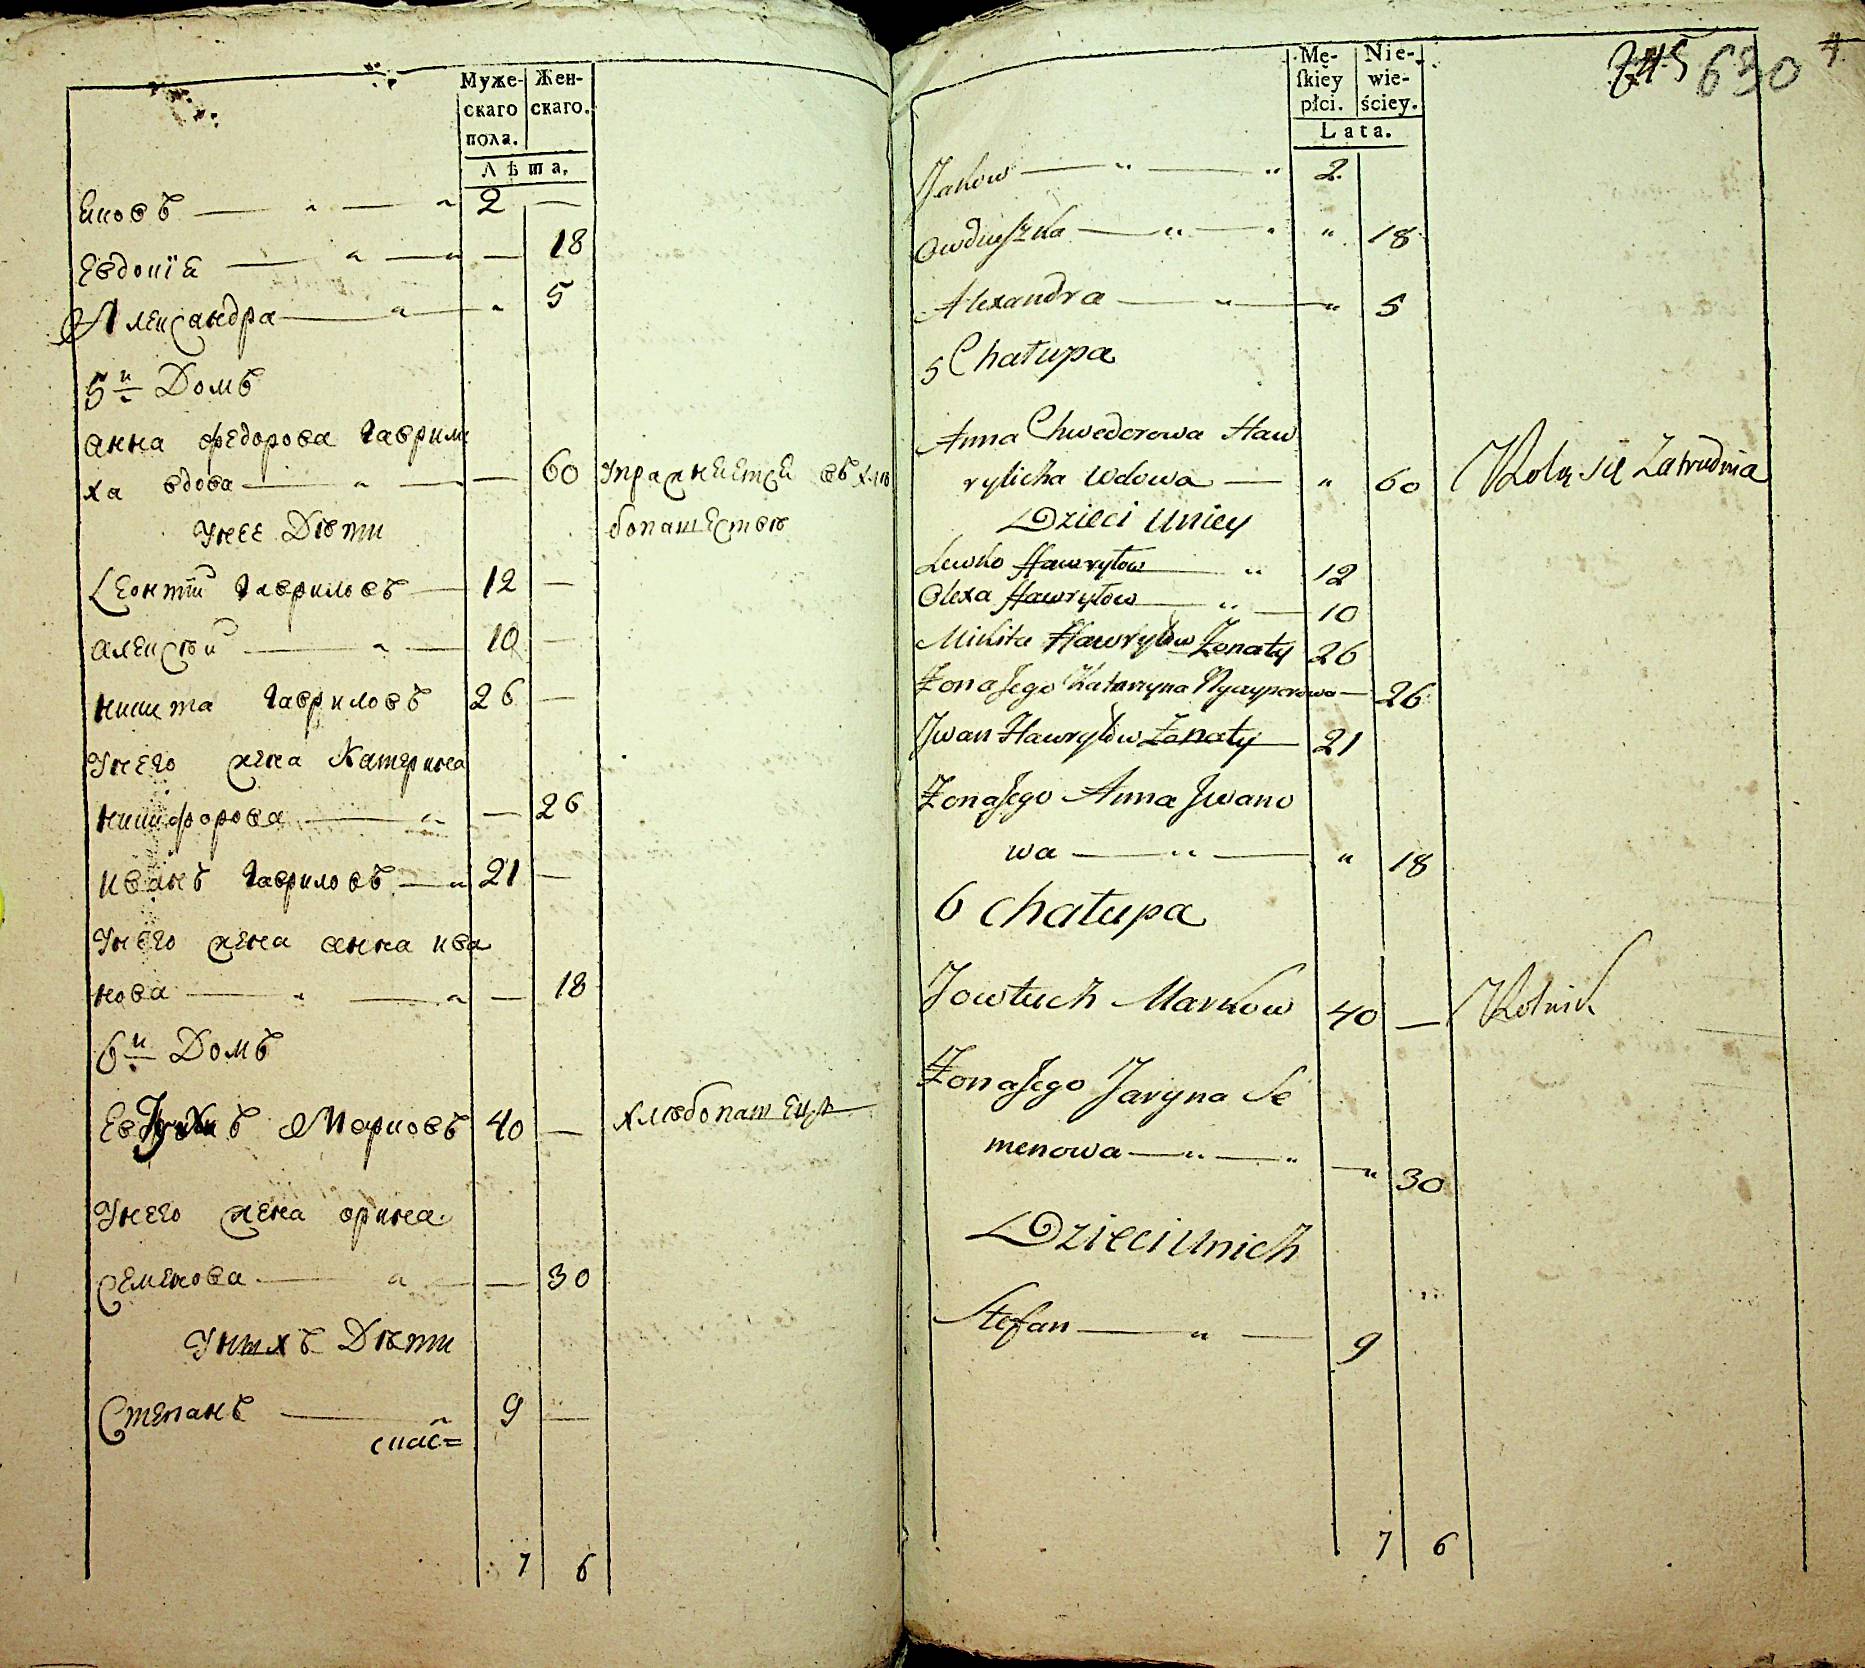 Муже-
скаго
пола.
Жен-
скаго.
Лѣта.
Яковъ — „ — „ 2 —
Евдокія — „ — „ — 18
Александра — „ „ 5
5й Домъ
Анна Федорова Гаврили
ха вдова — „ — — 60 Упражняется въ хлѣ
бопашествѣ
У нее Дѣти
Леонтій Гавриловъ — 12 —
Алексѣй — „ — 10 —
Никита Гавриловъ 26 —
У него жена Катерина
Никифорова — „ — 26
Иванъ Гавриловъ — „ 21 —
У него жена Анна Ива
нова — „ — „ — 18
6й Домъ
Марковъ 40 — хлѣбопашецъ
У него жена Орина
Семенова — „ — — 30
У нихъ Дѣти
Степанъ — „ 9 —
7 6
Mę-
ſkiey
płci.
Nie-
wie-
ściey.
Lata.
245 630 4
Jakow — „ — „ 2
Owdiuszka — „ — „ „ 18
Alexandra — „ — „ 5
5 Chałupa
Anna Chwedorowa Haw
rylicha Wdowa — „ 60 Rolą się Zatrudnia
Dzieci Uniey
Lewko Hawryłow — „ 12
Olexa Hawryłow — „ — 10
Mikita Hawryłow Żonaty 26
Żona Jego Katarzyna Nyczyporowa — 26
Jwan Hawryłow Żonaty — 21
Żona Jego Anna Jwano
wa — „ — „ 18
6 Chałupa
Jowtuch Markow 40 — Rolnik
Żona Jego Jaryna Se
menowa — „ — „ — „ 30
Dzieci Unich
Stefan — „ — 9
7 6